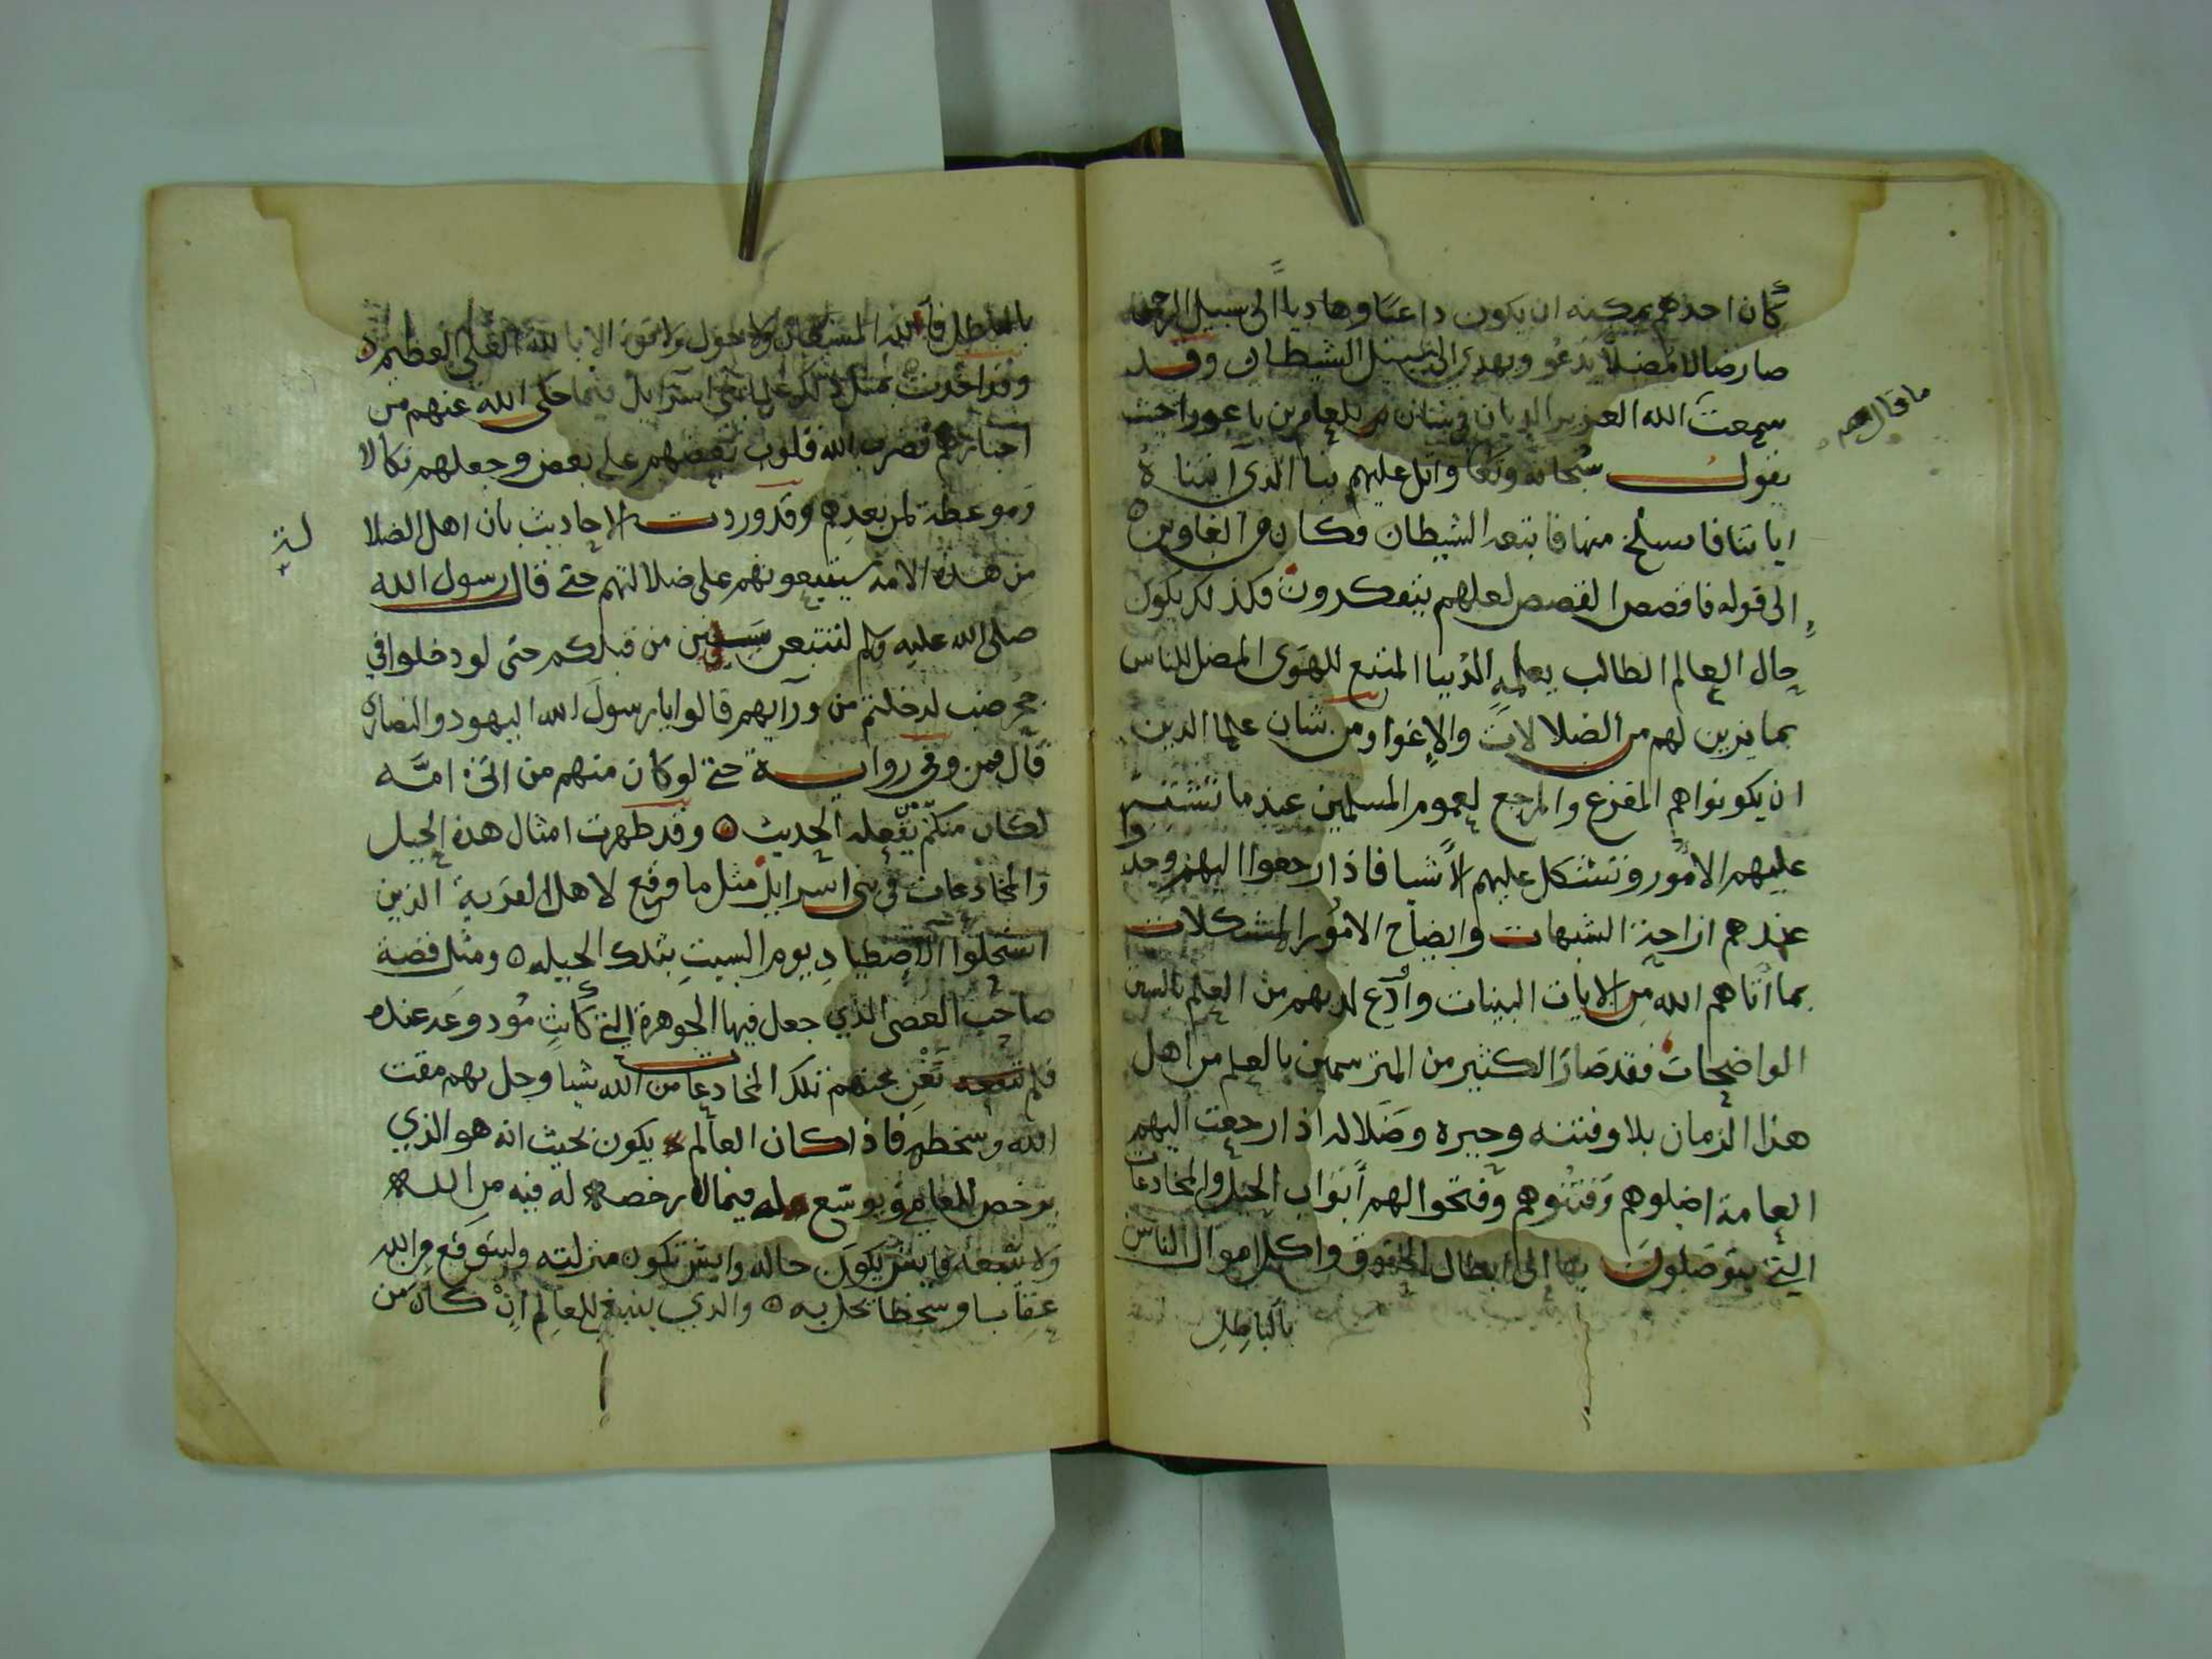 كان احدهم يمكنه ان يكون داعيًا وهاديا الى سبيل الرحمن
صار ضالا مضلا يدعو ويهدي الى سبيل الشيطان وقد
سمعت الله العزيز الديان في شان بلعام بن باعورا حيث
ما قال
يقول سبحانه وتعا واتل عليهم نبا الذي اتيناه
اياتنا فانسلخ منها فاتبعه الشيطان فكان من الغاوين
الى قوله فاقصص القصص لعلهم يتفكرون فكذلك يكون
حال العالم الطالب بعلمه الدنيا المتبع للهوى المضل للناس
بما يزين لهم من الضلالات والاغوا ومن شان علما الدين
ان يكونوا هم المفزع والمرجع لعموم المسلمين عند ما تشتبه
عليهم الامور وتشكل عليهم الاشيا فاذا رجعوا اليهم وجدوا
عندهم ازاحة الشبهات وايضاح الامور المشكلات
بما اتاهم الله من الايات البينات وأدع لديهم من العلم بالسنن
الواضحات فقد صار الكثير من المترسمين بالعلم من اهل
هذا الزمان بلا وفتنه وحيره وضلاله اذا رجعت اليهم
العامة اضلوهم وفتنوهم وفتحوا لهم أبواب الحيل والمخادعات
التي يتوصلون بها الى ابطال الحقوق واكل اموال الناس
بالباطل
بالباطل فالله المستعان ولا حول ولا قوة الا بالله العلي العظيم
وقد اخذت بمثل ذلك علما بني اسرايل فيما حكى الله عنهم من
اخبارهم فضرب الله قلوب بعضهم على بعض وجعلهم نكالا
وموعظة لمن بعدهم وقد وردت الاحاديث بان اهل الضلا
لة
من هذه الامة سيتبعونهم على ضلالتهم حتى قال رسول الله
صلى الله عليه ولم لتتبعن سنن من قبلكم حتى لو دخلوا في
جحر ضب لدخلتم من ورآيهم قالوا يا رسول الله اليهود والنصارى
قال فمن وفي رواية حتى لو كان منهم من اتى امّه
لكان منكم من يفعله الحديث ه وقد ظهرت امثال هذه الحيل
والمخادعات في بني اسرايل مثل ما وقع لاهل القرية الذين
استحلوا الاصطياد يوم السبت بتلك الحيله ه ومثل قصة
صاحب العصى الذي جعل فيها الجوهرة التي كانت مودوعة عنده
فلم تغن عنهم تلك المخادعات من الله شيا وحل بهم مقت
الله وسخطه فاذا كان العالم يكون بحيث انه هو الذي
يرخص للعامي ويوسّع له فيما لا رخصه له فيه من الله
ولا سعه فايش يكون حاله وايش تكون منزلته وليتوقع من الله
عقابا وسخطا يحل به ه والذي ينبغي للعالم ان كان من